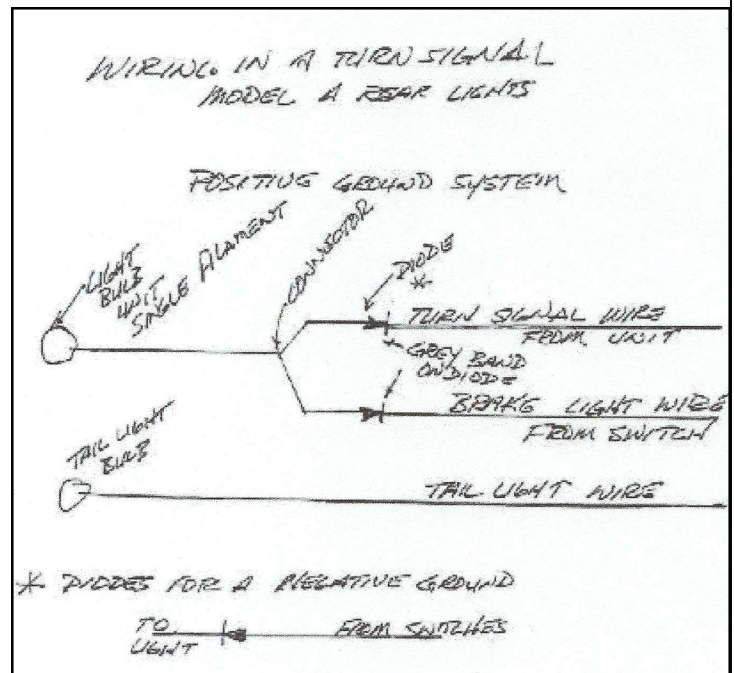 WIRING IN A TURN SIGNAL
MODEL A REAR LIGHTS
POSITIVE GROUND SYSTEM
LIGHT
BULB
UNIT
SINGLE FILAMENT
CONNECTOR
DIODE
*
TURN SIGNAL WIRE
FROM UNIT
GREY BAND
ON DIODE
BRAKE LIGHT WIRE
FROM SWITCH
TAIL LIGHT
BULB
TAIL LIGHT WIRE
* DIODES FOR A NEGATIVE GROUND
TO
LIGHT
FROM SWITCHES